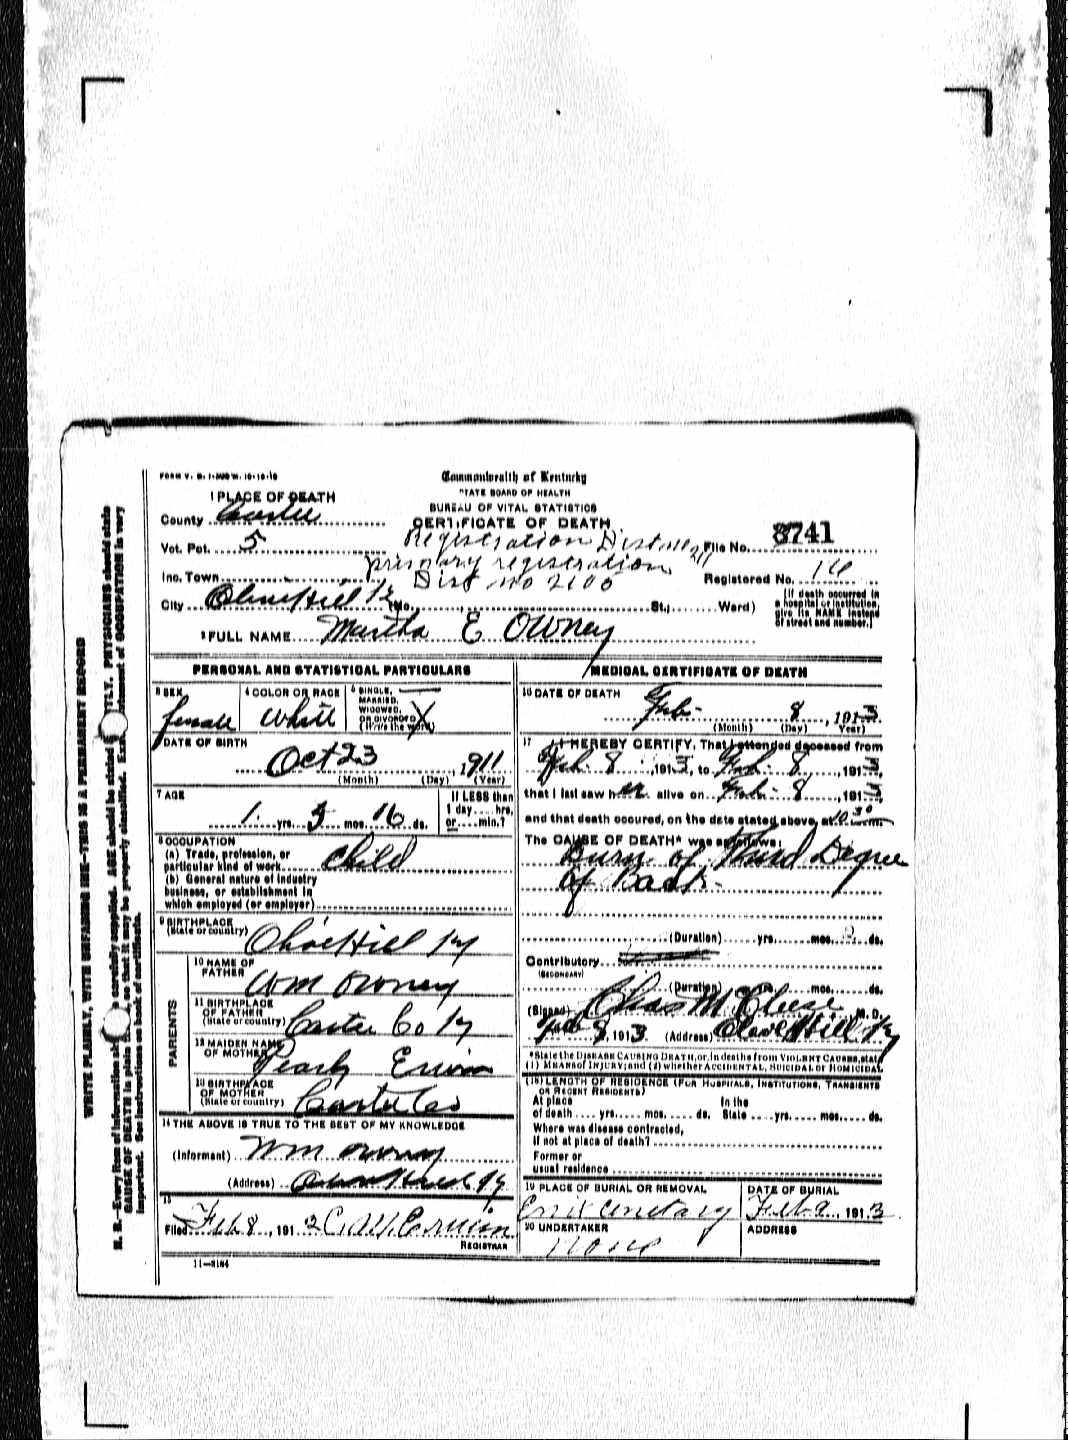 FORM V. S. 1-
Commonwealth of Kentucky
STATE BOARD OF HEALTH
BUREAU OF VITAL STATISTICS
CERTIFICATE OF DEATH
1 PLACE OF DEATH
County Carter
Vot. Pct. 5
Registration Dist no 211
File No. 3741
Inc. Town
primary registration
Dist no 2105
Registered No. 14
City Olive Hill Ky (No. , St.; Ward)
[If death occurred in a hospital or institution, give its NAME instead of street and number.]
2 FULL NAME Martha E Owney
PERSONAL AND STATISTICAL PARTICULARS
3 SEX female
4 COLOR OR RACE White
5 SINGLE, MARRIED, WIDOWED, OR DIVORCED (Write the word) X
DATE OF BIRTH
Oct 23, 1911
(Month) (Day) (Year)
7 AGE
1 yrs. 3 mos. 16 ds.
If LESS than 1 day.... hrs. or.... min.?
8 OCCUPATION
(a) Trade, profession, or particular kind of work Child
(b) General nature of industry business, or establishment in which employed (or employer)
9 BIRTHPLACE (State or country) Olive Hill Ky
PARENTS
10 NAME OF FATHER Wm Owney
11 BIRTHPLACE OF FATHER (State or country) Carter Co Ky
12 MAIDEN NAME OF MOTHER Pearly Erwin
13 BIRTHPLACE OF MOTHER (State or country) Carter Co
14 THE ABOVE IS TRUE TO THE BEST OF MY KNOWLEDGE
(Informant) Wm Owney
(Address) Olive Hill Ky
15
Filed Feb 8, 1913 C. M. Erwin
REGISTRAR
11-3184
MEDICAL CERTIFICATE OF DEATH
16 DATE OF DEATH
Feb 8, 1913
(Month) (Day) (Year)
17 I HEREBY CERTIFY, That I attended deceased from
Feb. 8, 1913, to Feb. 8, 1913,
that I last saw her alive on Feb. 8, 1913,
and that death occured, on the date stated above, at 10 30 m.
The CAUSE OF DEATH* was as follows:
Burn of Third Degree
of Back.
(Duration) yrs. mos. ds.
Contributory
(SECONDARY)
(Duration) mos. ds.
(Signed) Chas M M. D.
Feb 8, 1913 (Address) Olive Hill Ky
*State the DISEASE CAUSING DEATH, or, in deaths from VIOLENT CAUSES, state (1) MEANS of INJURY; and (2) whether ACCIDENTAL, SUICIDAL or HOMICIDAL.
(18) LENGTH OF RESIDENCE (FOR HOSPITALS, INSTITUTIONS, TRANSIENTS OR RECENT RESIDENTS)
At place of death .... yrs. .... mos. .... ds. In the State .... yrs. .... mos. .... ds.
Where was disease contracted, if not at place of death?
Former or usual residence
19 PLACE OF BURIAL OR REMOVAL
DATE OF BURIAL
Cemetary Feb 9, 1913
20 UNDERTAKER
ADDRESS
none
WRITE PLAINLY, WITH UNFADING INK—THIS IS A PERMANENT RECORD
N. B.—Every item of information carefully supplied. AGE should be stated PHYSICIANS should state
CAUSE OF DEATH in plain so that it may be properly classified. of OCCUPATION is very
important. See instructions on back of certificate.